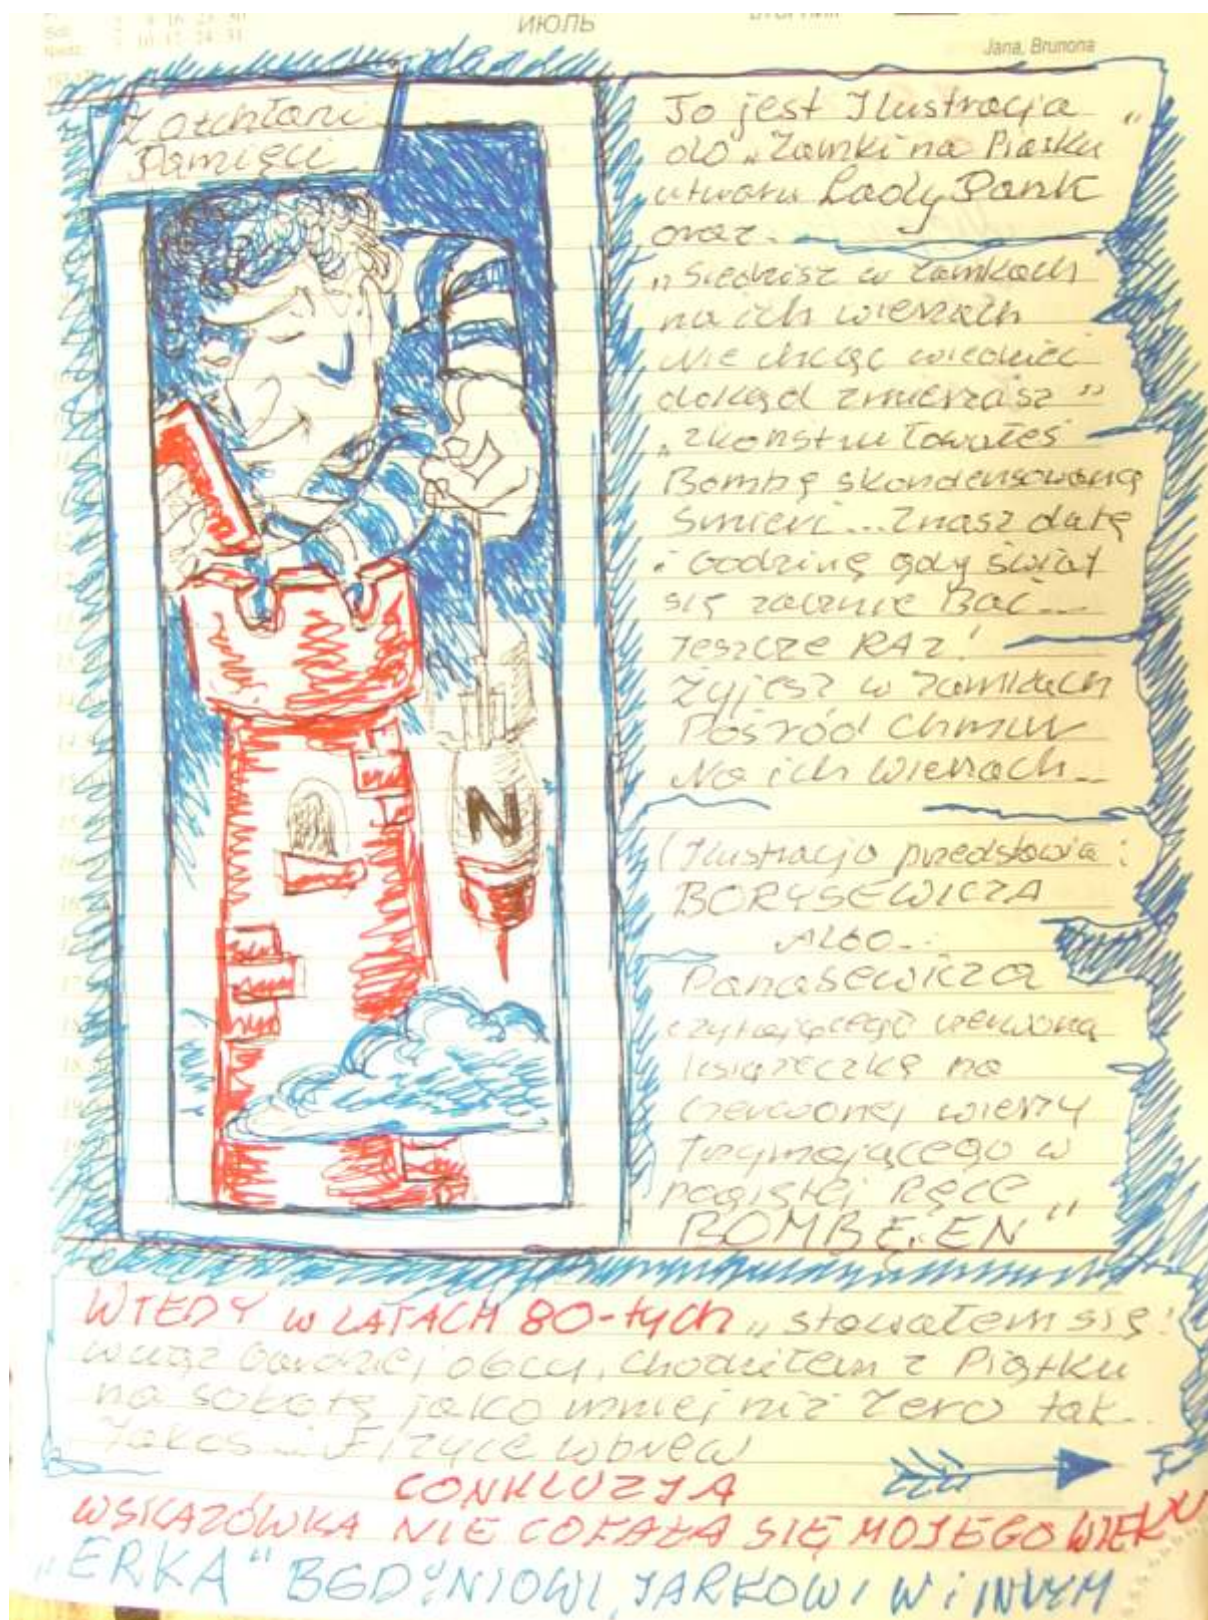 ИЮЛЬ
Jana, Brunona
Z otchłani
Pamięci
To jest Ilustracja
do „Zamki na Piasku"
utworu Lady Pank
oraz.
„Siedzisz w zamkach
na ich wieżach
Nie chcąc wiedzieć
dokąd zmierzasz"
„zkonstruowałeś
Bombę skondensowaną
śmierć... Znasz datę
i Godzinę gdy świat
się zacznie Bać...
Jeszcze RAZ!
Żyjesz w zamkach
Pośród Chmur
Na ich wieżach...
N
(Ilustracja przedstawia:
BORYSEWICZA
ALbo...
Panasewicza
czytającego czerwoną
książeczkę na
czerwonej wieży
Trzymającego w
ręce
BOMBĘ „EN"
WTEDY W LATACH 80-tych „stawałem się!
wciąż bardziej obcy, chodziłem z Piątku
na sobotę jako mniej niż Zero tak
Jakoś... Fizyce wbrew
CONKLUZJA
WSKAZÓWKA NIE COFAŁA SIĘ MOJEGO WIEKU
„ERKA" JARKOWI W i INNYM